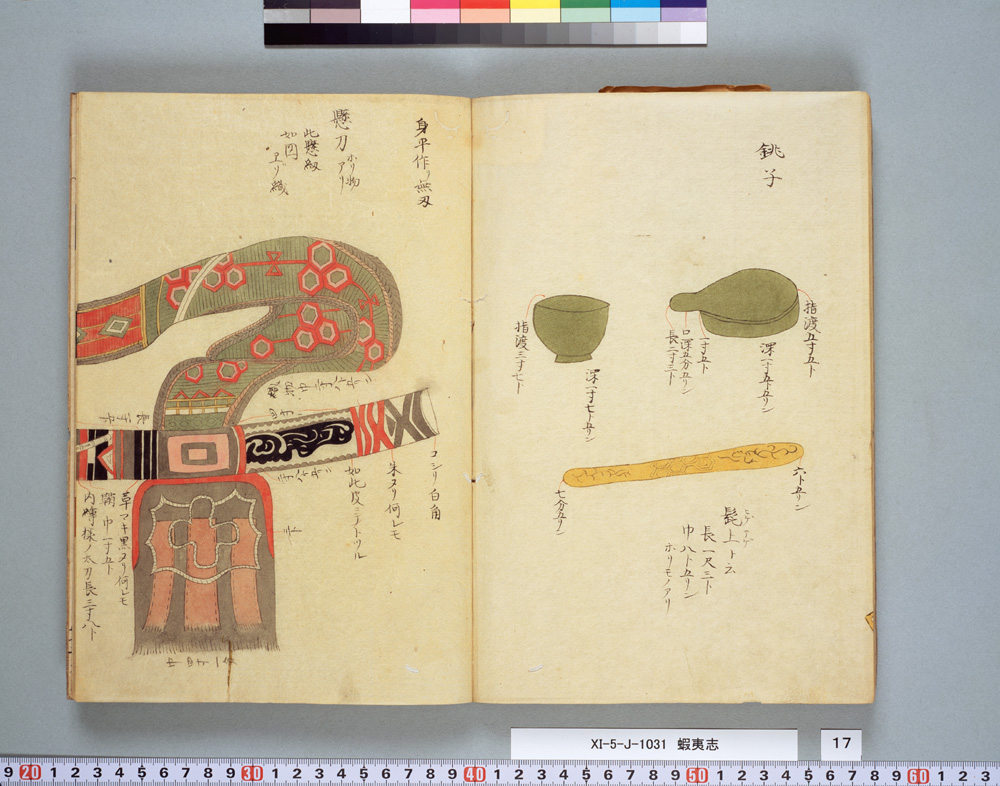 銚子
指渡五寸五ト
深一寸五ト五リン
一寸五ト
口深五分五リン
長二寸三ト
指渡三寸七ト
深一寸七ト五リン
六ト五リン
七分五リン
髭上ト云
ヒゲアゲ
長一尺三ト
巾八ト五リン
ホリモノアリ
身平作リ無刄
懸刀
ホリ物
アリ
此懸緞
如図
ヱゾ織
コシリ白角
朱ヌリ何レモ
如此皮ニテトツル
草マキ黒ヌリ何レモ
巾一寸五ト
XI-5-J-1031 蝦夷志
17
9 20 1 2 3 4 5 6 7 8 9 30 1 2 3 4 5 6 7 8 9 40 1 2 3 4 5 6 7 8 9 50 1 2 3 4 5 6 7 8 9 60 1 2 3